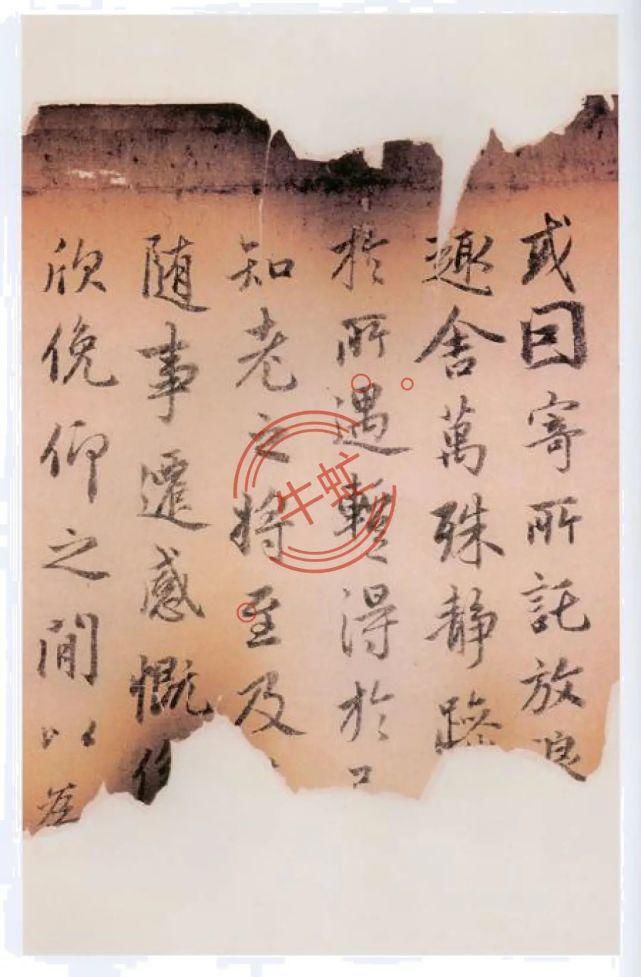 或因寄所託放浪
趣舍萬殊静躁
於所遇蹔得於
知老之将至及
随事遷感慨係
欣俛仰之閒以為
牛虻